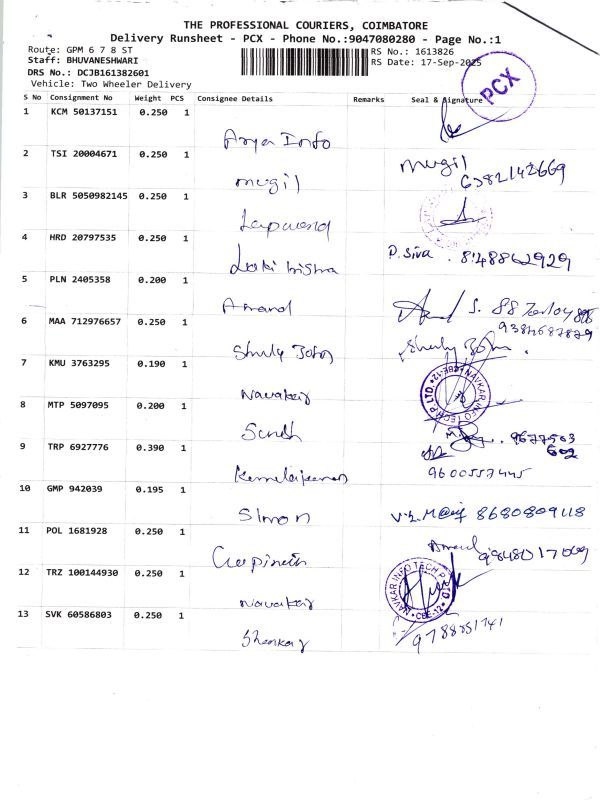 THE PROFESSIONAL COURIERS, COIMBATORE
Delivery Runsheet - PCX - Phone No.:9047080280 - Page No.:1
Route: GPM 6 7 8 ST
RS No.: 1613826
Staff: BHUVANESHWARI
RS Date: 17-Sep-2025
DRS No.: DCJB161382601
Vehicle: Two Wheeler Delivery
PCX
S No Consignment No Weight PCS Consignee Details Remarks Seal & Signature
1 KCM 50137151 0.250 1
Arya Info
2 TSI 20004671 0.250 1
mugil mugil
6382142669
3 BLR 5050982145 0.250 1
4 HRD 20797535 0.250 1
P. Siva . 8148862929
5 PLN 2405358 0.200 1
Anand
6 MAA 712976657 0.250 1
9384687829
7 KMU 3763295 0.190 1
Navakar
NAVKAR INFO TECH P LTD.
8 MTP 5097095 0.200 1
9677503
602
9 TRP 6927776 0.390 1
9600557445
10 GMP 942039 0.195 1
Simon
8680809118
11 POL 1681928 0.250 1
12 TRZ 100144930 0.250 1
Navakar
NAVKAR INFO TECH P LTD. CBE-12
13 SVK 60586803 0.250 1
Shankar
9788851741